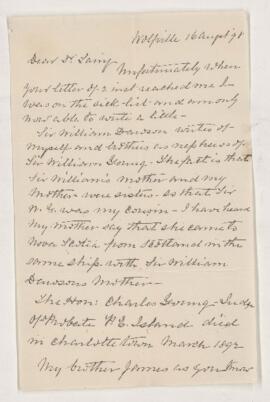 Wolfville 16 Augst 98
Dear Dr Laing
Unfortunately when
your letter of 2 inst reached me I
was on the sick list and am only
now able to write a little -
Sir William Dawson writes of
myself and brothers as nephews of
Sir William Young - The fact is that
Sir William's mother and my
Mother were sisters - so that Sir
W. Y. was my cousin - I have heard
my mother say that she came to
Nova Scotia from Scotland in the
same ship with Sir William
Dawsons Mother -
The Hon: Charles Young - Judge
Of Probate P. E. Island died
in Charlottetown March 1892
My brother James as you know